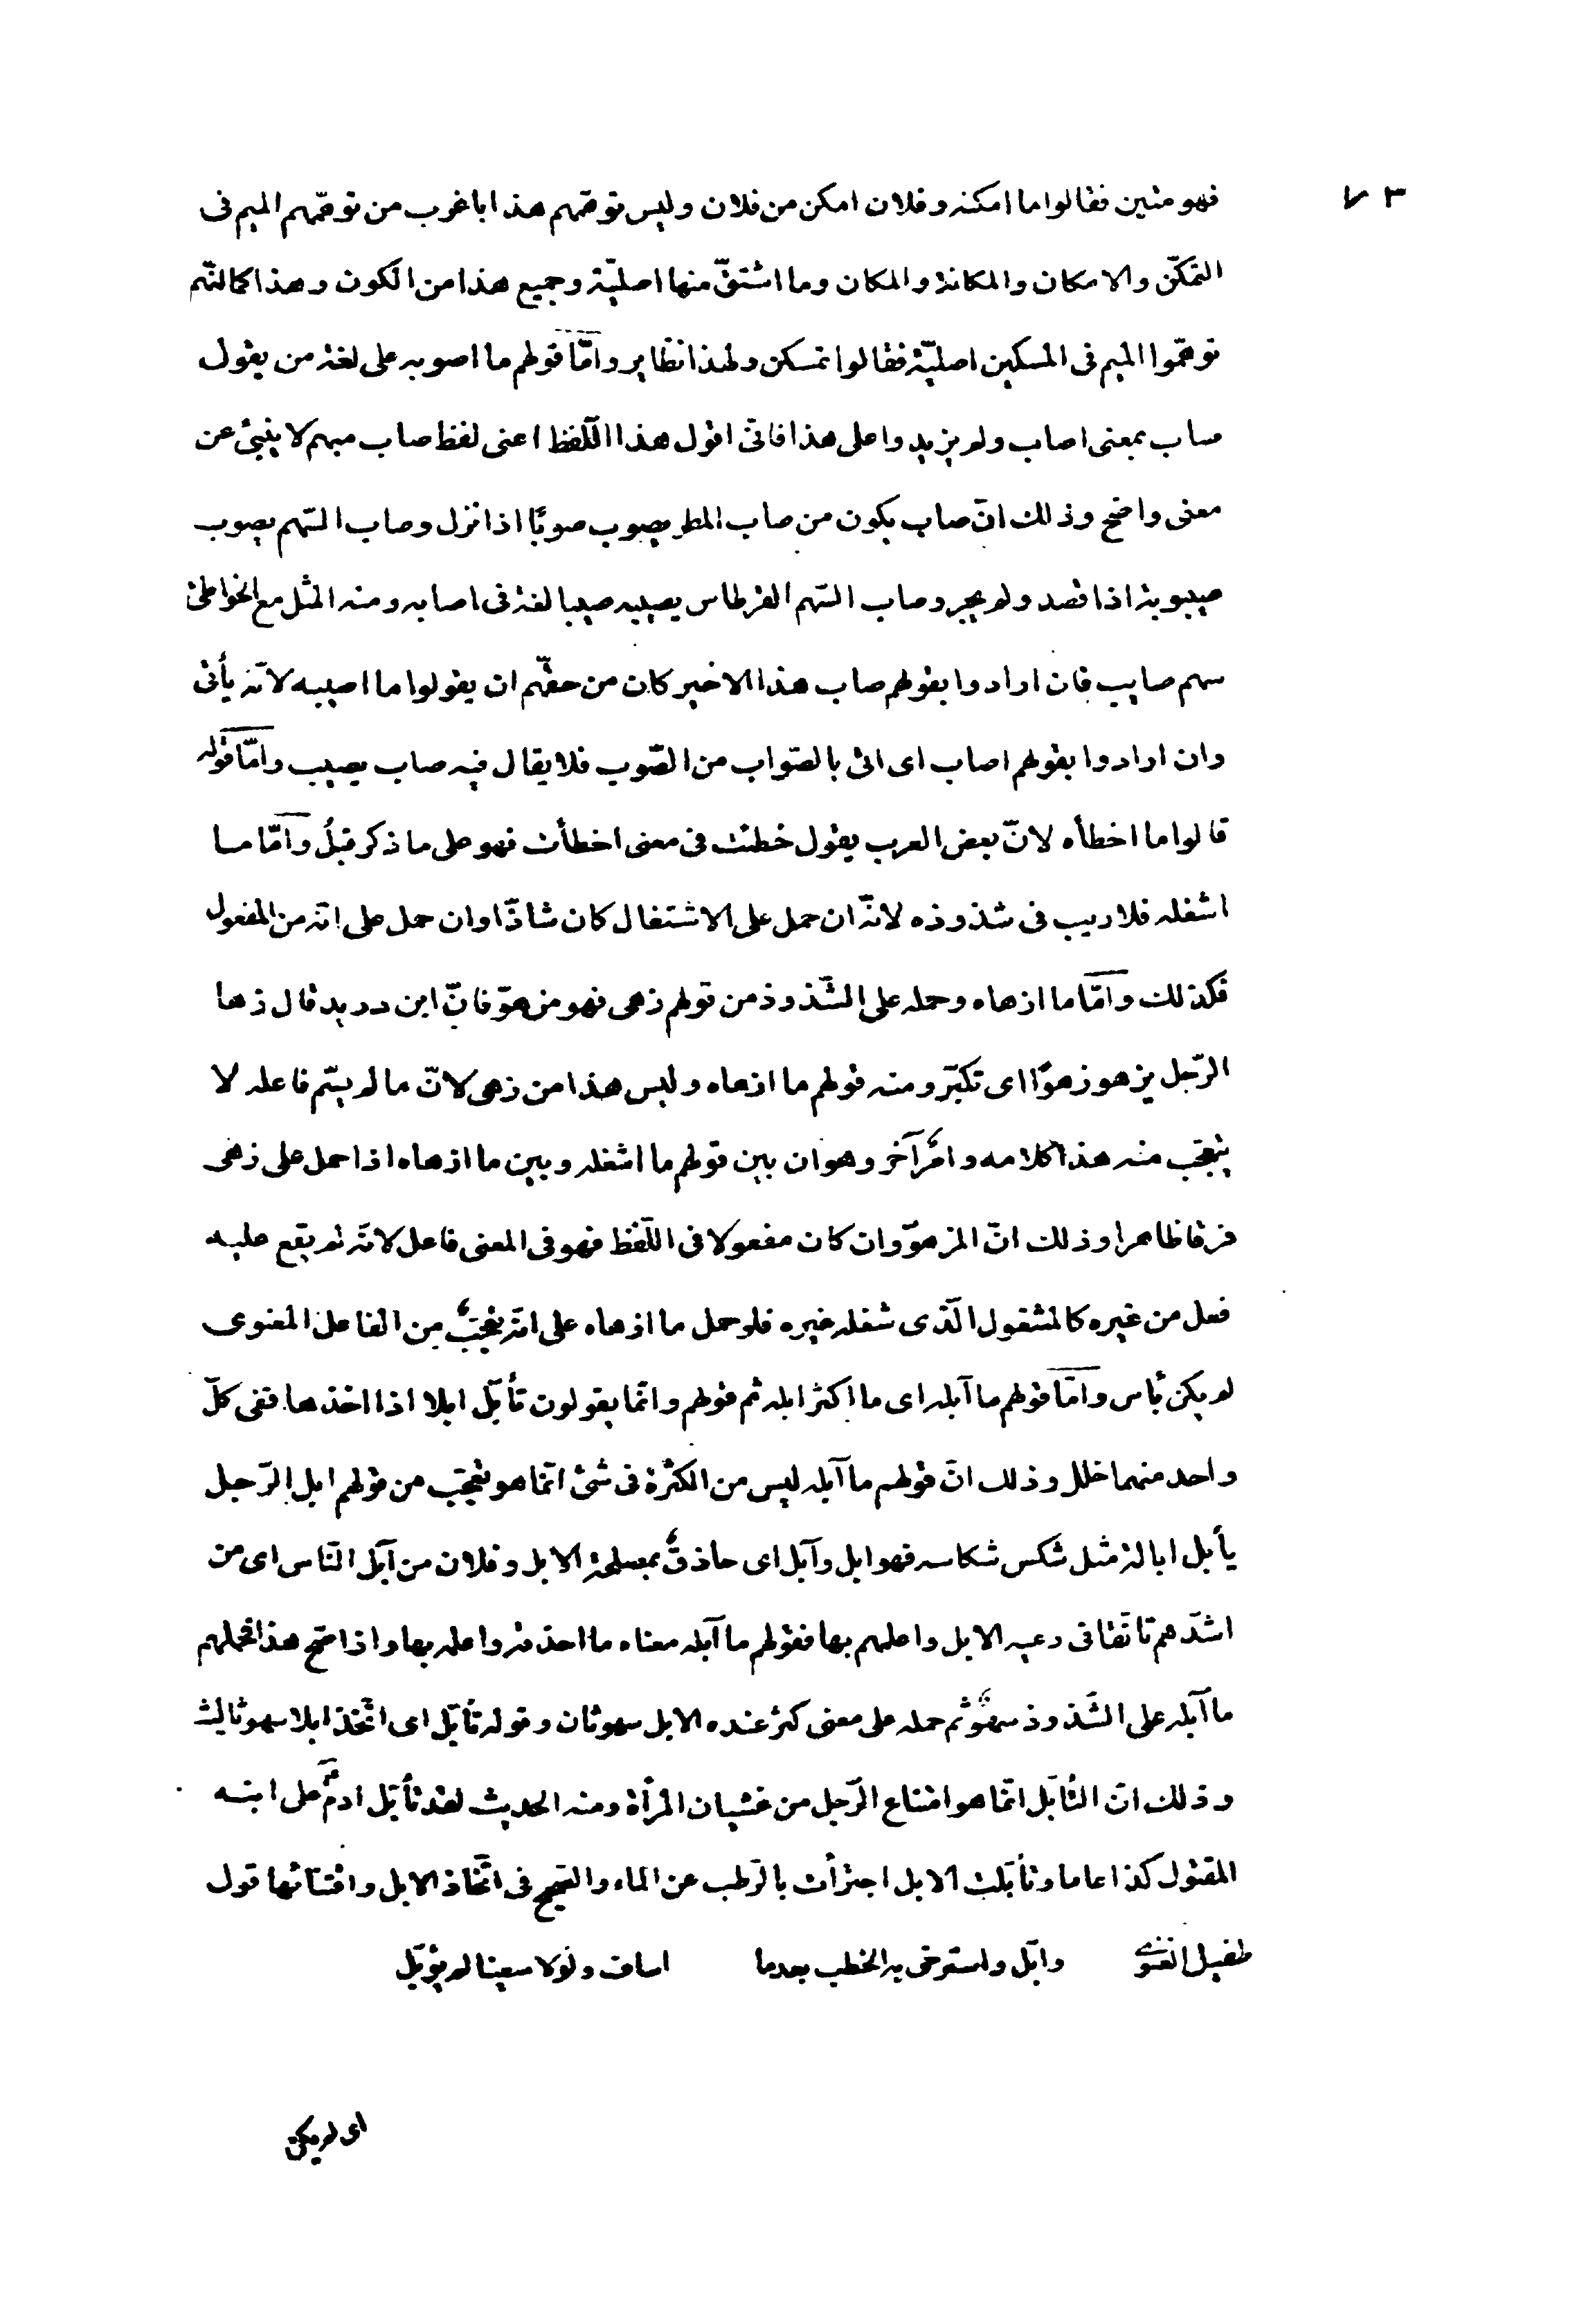 ٧٣
فهو متين فقالوا ما امكنه وفلان امكن من فلان وليس توهّمهم هذا باغرب من توهّمهم الميم فى
التمكّن والامكان والمكانة والمكان وما اشتقّ منها اصليّة وجميع هذا من الكون وهذا كما انّهم
توهّموا الميم فى المسكين اصليّة فقالوا تمسكن ولهذا نظاير وامّا قولهم ما اصوبه على لغة من يقول
صاب بمعنى اصاب ولم يزيدوا على هذا فانّى اقول هذا اللّفظ اعنى لفظ صاب مبهم لا ينبئ عن
معنى واضح وذلك انّ صاب يكون من صاب المطر يصوب صوبًا اذا نزل وصاب السّهم يصوب
صيبوبة اذا قصد ولم يجر وصاب السّهم القرطاس يصيبه صيبا لغة فى اصابه ومنه المثل مع الخواطئ
سهم صايب فان ارادوا بقولهم صاب هذا الاخير كان من حقّهم ان يقولوا ما اصيبه لانّه يأتى
وان ارادوا بقولهم اصاب اى اتى بالصّواب من الصّوب فلا يقال فيه صاب يصيب وامّا قوله
قالوا ما اخطأه لانّ بعض العرب يقول خطئت فى معنى اخطأت فهو على ما ذكر قبلُ وامّا ما
اشغله فلا ريب فى شذوذه لانّه ان حمل على الاشتغال كان شاذّا وان حمل على انّه من المفعول
فكذلك وامّا ما ازهاه وحمله على الشّذوذ من قولهم زهى فهو مزهوّ فانّ ابن دريد قال زها
الرّجل يزهو زهوًا اى تكبّر ومنه قولهم ما ازهاه وليس هذا من زهى لانّ ما لم يسّم فاعله لا
يتعجّب منه هذا كلامه وامرٌ آخر وهو ان بين قولهم ما اشغله وبين ما ازهاه اذا حمل على زهى
فرقا ظاهرا وذلك انّ المزهوّ وان كان مفعولا فى اللّفظ فهو فى المعنى فاعل لانّه لم يقع عليه
فعل من غيره كالمشغول الّذى شغله غيره فلو حمل ما ازهاه على انّه تعجّبٌ من الفاعل المعنوى
لم يكن بأس وامّا قولهم ما آبله اى ما اكثر ابله ثم قولهم وانّما يقولون تأبّل ابلا اذا اتخذها ففى كلّ
واحد منهما خلل وذلك انّ قولهم ما آبله ليس من الكثرة فى شئ انّما هو تعجّب من قولهم ابل الرّجل
يأبل ابالة مثل شكس شكاسه فهو ابل وآبل اى حاذقٌ بمصلحة الابل وفلان من آبل النّاس اى من
اشدّهم تأنّقا فى رعيه الابل واعلمهم بها فقولهم ما آبله معناه ما احذقه واعلمه بها واذا صحّ هذا فحملهم
ما آبله على الشّذوذ سهوٌ ثم حمله على معنى كثر عنده الابل سهو ثان وقوله تأبّل اى اتّخذ ابلا سهو ثالث
وذلك انّ التأبّل انّما هو امتناع الرّجل من غشيان المرأة ومنه الحديث لقد تأبّل ادم ع على ابنه
المقتول كذا عاما وتأبّلت الابل اجتزأت بالرّطب عن الماء والصّحيح فى اتّخاذ الابل واقتنائها قول
طفيل الغنوى وابّل واسترخى به الخطب بعدما اساف ولولا سعينا لم يؤبّل
اى لم يكن